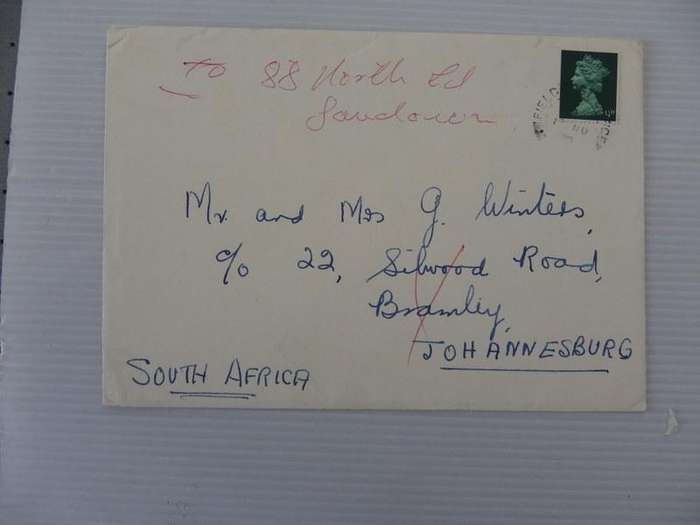 To 88 North Rd
Sandown
Mr. and Mrs G. Winters,
c/o 22, Silwood Road,
Bramley,
JOHANNESBURG
SOUTH AFRICA